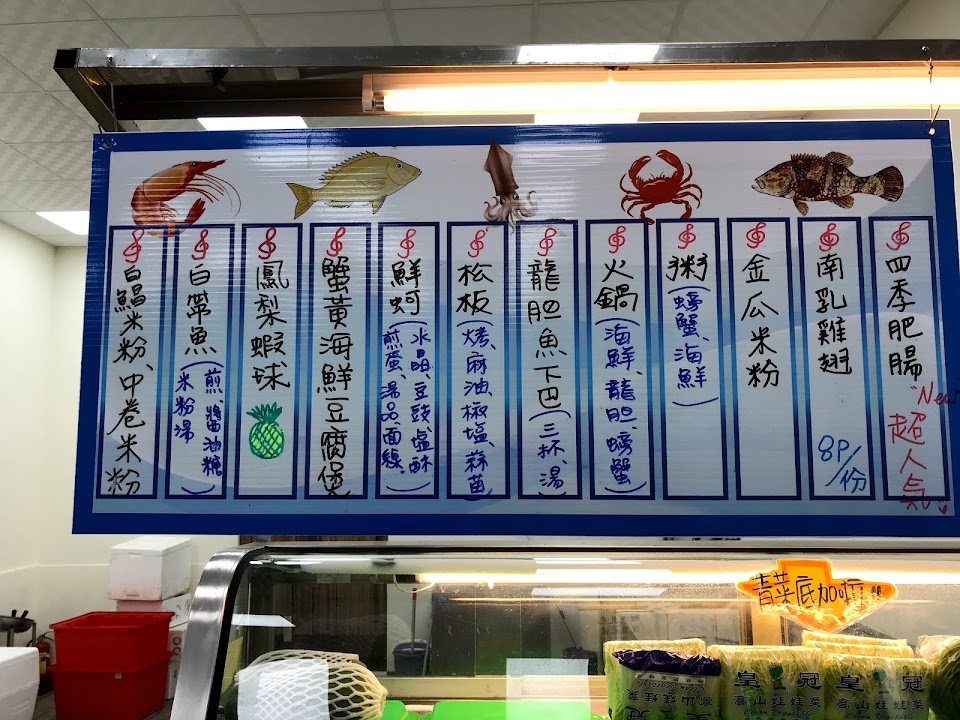 四季肥腸
"New"
超人氣
南乳雞翅
8P/份
金瓜米粉
粥(螃蟹、海鮮)
火鍋(海鮮、龍胆、螃蟹)
龍胆魚下巴(三杯、湯)
松板(烤、麻油、椒塩、蒜苗)
鮮蚵(水晶、豆豉、塩酥
煎蛋、湯品、面線)
蟹黃海鮮豆腐煲
鳳梨蝦球
白帶魚(煎、醬油糖
米粉湯)
白鯧米粉、中卷米粉
青菜底加啦
皇冠
高山娃娃菜
皇冠
高山娃娃菜